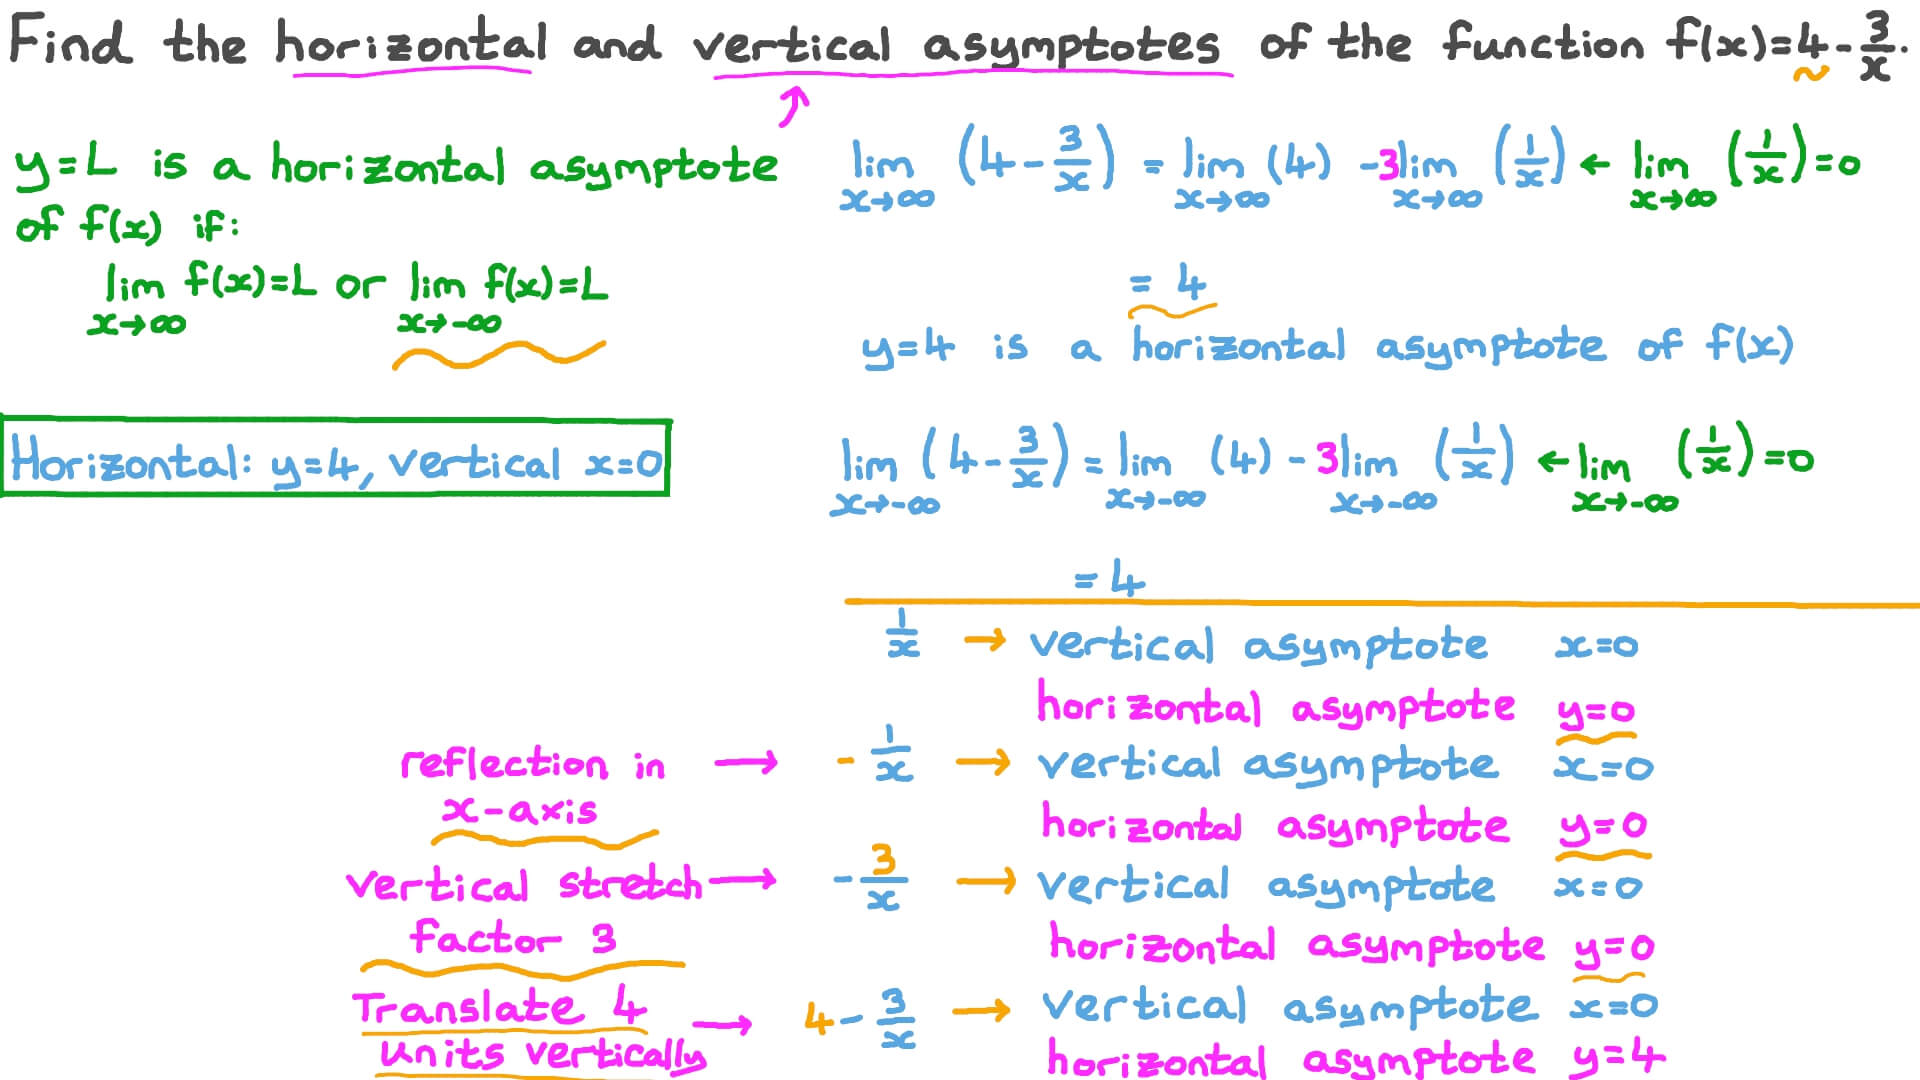 Find the horizontal and vertical asymptotes of the function f(x)=4-3/x.
y=L is a horizontal asymptote
of f(x) if:
lim x→∞ f(x)=L or lim x→-∞ f(x)=L
Horizontal: y=4, vertical x=0
lim x→∞ (4-3/x) = lim x→∞ (4) -3lim x→∞ (1/x) ← lim x→∞ (1/x)=0
= 4
y=4 is a horizontal asymptote of f(x)
lim x→-∞ (4-3/x) = lim x→-∞ (4) - 3lim x→-∞ (1/x) ← lim x→-∞ (1/x)=0
= 4
1/x → vertical asymptote x=0
horizontal asymptote y=0
reflection in → -1/x → vertical asymptote x=0
x-axis horizontal asymptote y=0
vertical stretch → -3/x → vertical asymptote x=0
factor 3 horizontal asymptote y=0
Translate 4 → 4-3/x → vertical asymptote x=0
units vertically horizontal asymptote y=4